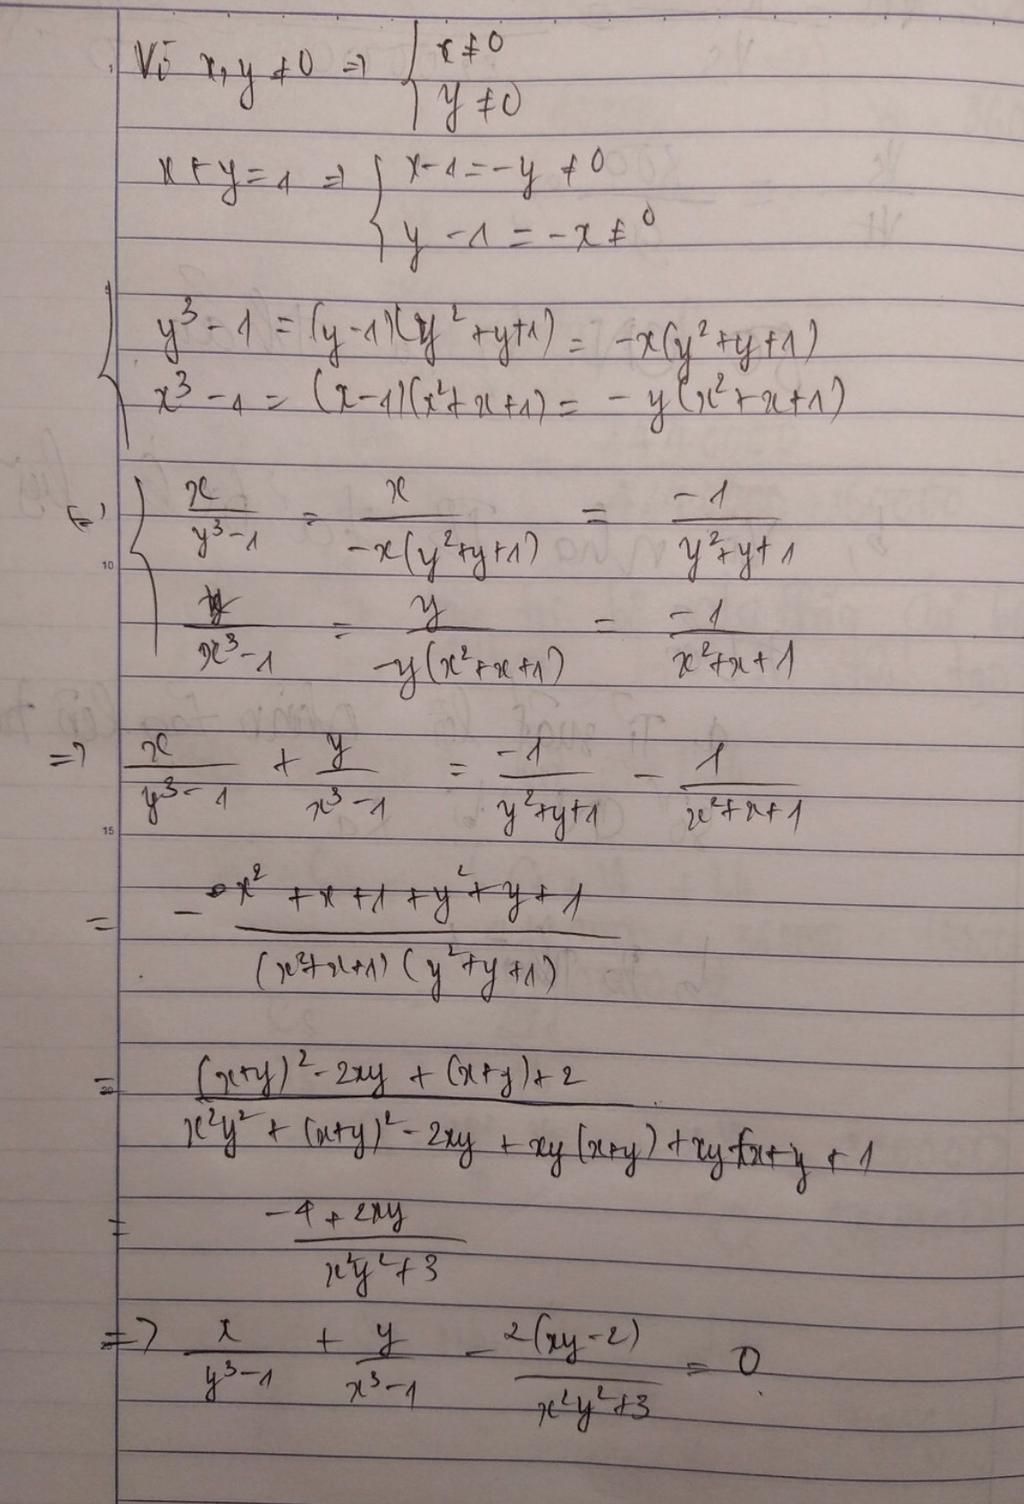 Vì x, y ≠ 0 => { x ≠ 0
y ≠ 0
x + y = 1 => { x - 1 = -y ≠ 0
y - 1 = -x ≠ 0
y³ - 1 = (y - 1)(y² + y + 1) = -x(y² + y + 1)
x³ - 1 = (x - 1)(x² + x + 1) = -y(x² + x + 1)
(=) { x/(y³ - 1) = x/(-x(y² + y + 1)) = -1/(y² + y + 1)
10
y/(x³ - 1) = y/(-y(x² + x + 1)) = -1/(x² + x + 1)
=> x/(y³ - 1) + y/(x³ - 1) = -1/(y² + y + 1) - 1/(x² + x + 1)
15
= - (x² + x + 1 + y² + y + 1)/((x² + x + 1)(y² + y + 1))
= ((x + y)² - 2xy + (x + y) + 2)/(x²y² + (x + y)² - 2xy + xy(x + y) + xy + x + y + 1)
= (-4 + 2xy)/(x²y² + 3)
=> x/(y³ - 1) + y/(x³ - 1) - 2(xy - 2)/(x²y² + 3) = 0